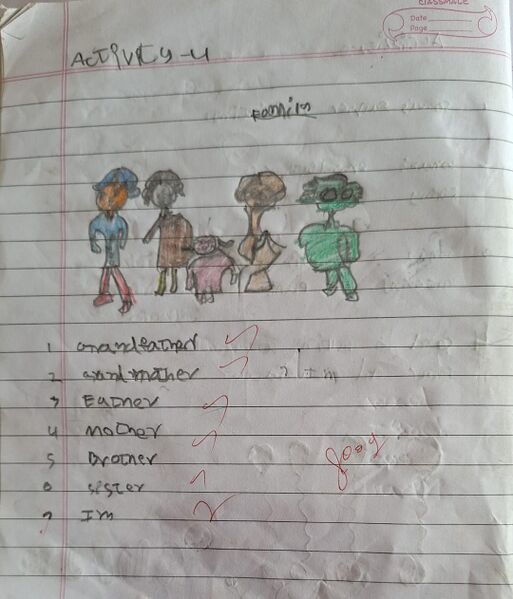 CLASSMATE
Date
Page
ACTIVITY-4
Family
1 Grandfather
2 Grandmother
3 Father
4 Mother
5 Brother
6 Sister
7 Im
7 Im
good